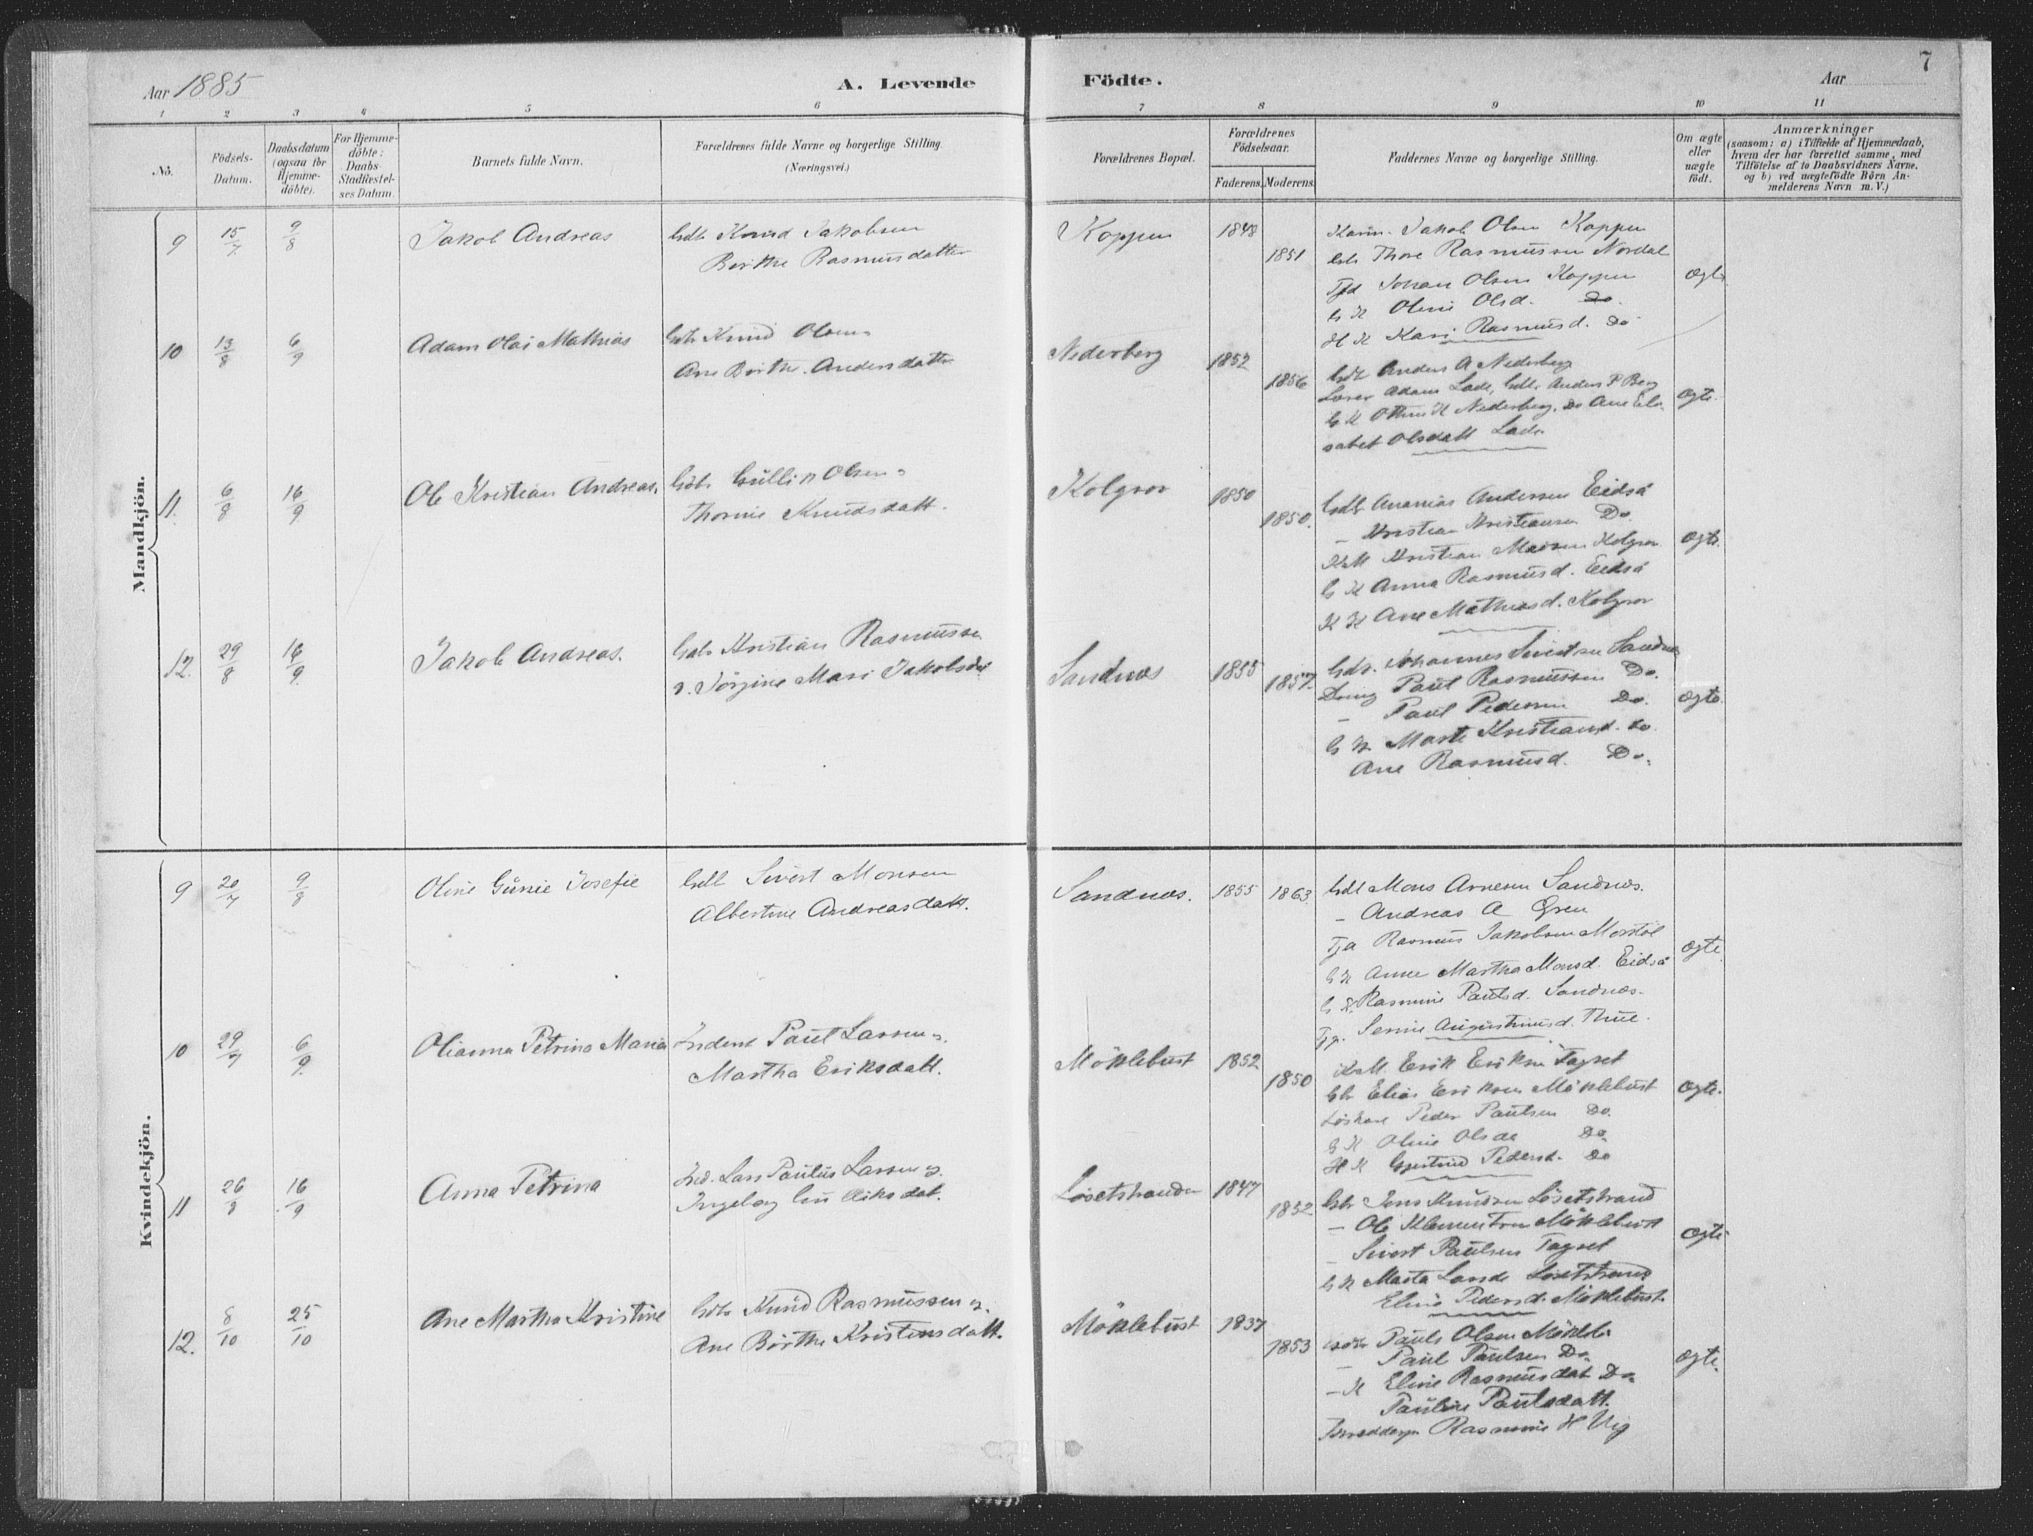 7
Aar 1885
A. Levende
Födte.
Aar
1 2 3 4 5 6 7 8 9 10 11
No.
Födsels-
Datum.
Daabsdatum
(ogsaa för
Hjemme-
döbte).
For Hjemme-
döbte:
Daabs
Stadfæstel-
ses Datum.
Barnets fulde Navn.
Forældrenes fulde Navne og borgerlige Stilling
(Næringsvei.)
Forældrenes Bopæl.
Forældrenes
Födselsaar.
Faderens.
Moderens.
Faddernes Navne og borgerlige Stilling.
Om ægte
eller
uægte
födt.
Anmærkninger
(saasom: a) i Tilfælde af Hjemmedaab,
hvem der har forrettet samme, med
Tilföielse af to Daabsvidners Navne.
og b) ved uægtefödte Börn An-
melderens Navn m. V.)
Mandkjön.
9 15/7 9/8 Jakob Andreas Gdb Knud Jakobsen
Berthe Rasmusdatter
Koppen 1848 1851
Jakob Olsen Koppen
Thore Rasmussen Nordal
Johan Olsen Koppen
G K Oline Olsd. Do.
H K Kari Rasmusd. Do
ægte
10 13/8 6/9 Adam Olai Mathias Gdb Knud Olsen
Ane Berthe Andersdatter
Nederberg 1852 1856
Gdb Anders A Nederberg
Lærer Adam Lade, Gdb. Anders P Berg
G K Nederberg. Do Ane Eli-
sabet Olsdatt Lade
ægte.
11. 6/8 16/9 Ole Kristian Andreas. Gdb Gullik Olsen
Thorine Knudsdatt.
Kolgrov 1850 1850.
Gdb Ananias Andersen Eidså
– Kristian Kristiansen Do.
K M Kristian Kolgrov
G K Anna Rasmusd. Eidså
K K Ane Mathiasd. Kolgrov
ægte.
12. 29/8 16/9. Jakob Andreas. Gdb Kristian Rasmussen
Jörgine Mari Jakobsdat
Sandnæs 1855 1857.
Gdb. Johannes Sivertsen Sandnæs
Paul Rasmussen Do.
– Paul Pedersen Do.
G K Marte Kristiansd. do.
Ane Rasmusd. Do.
ægte.
Kvindekjön.
9 20/7 9/8 Oline Gurie Josefie Gdb Sivert Monsen
Albertine Andreasdatt.
Sandnæs. 1855 1863
Gdb Mons Arnesen Sandnæs.
– Andreas A
Rasmus Jakobsen
G K Anne Martha Monsd. Eidså
G K. Rasmine Paulsd. Sandnæs.
Serine Augustinusd. Thue.
ægte.
10 29/7 6/9. Olianna Petrina Maria Inderst Paul Larsen
Martha Eriksdatt.
Möklebust 1852 1850
K M Erik Eriksen Tagset
Gb Elias Eriksen Möklebust
Löskarl Peder Paulsen Do.
G K Oline Olsda Do.
H K Gjertrud Pedersd. Do
ægte.
11 26/8 16/9 Anna Petrina Ind. Lars Paulus Larsen
Ingeborg
Lösetstranden 1847 1852
Gb Jens Knudsen Lösetstrand
– Ole Möklebust
– Sivert Paulsen Tagset
G K Marta Larsd Lösetstrand
Eline Pedersd. Möklebust.
ægte
12. 8/10 25/10 Ane Martha Kristine Gdb Knud Rasmussen
Ane Berthe Kristensdatt.
Möklebust 1837 1853
Gdb Pauls Olsen Mökleb
– Paul Paulsen Do.
– K Eline Rasmusdat Do.
Pauline Paulsdatt.
Rasmine H Vig
ægte.